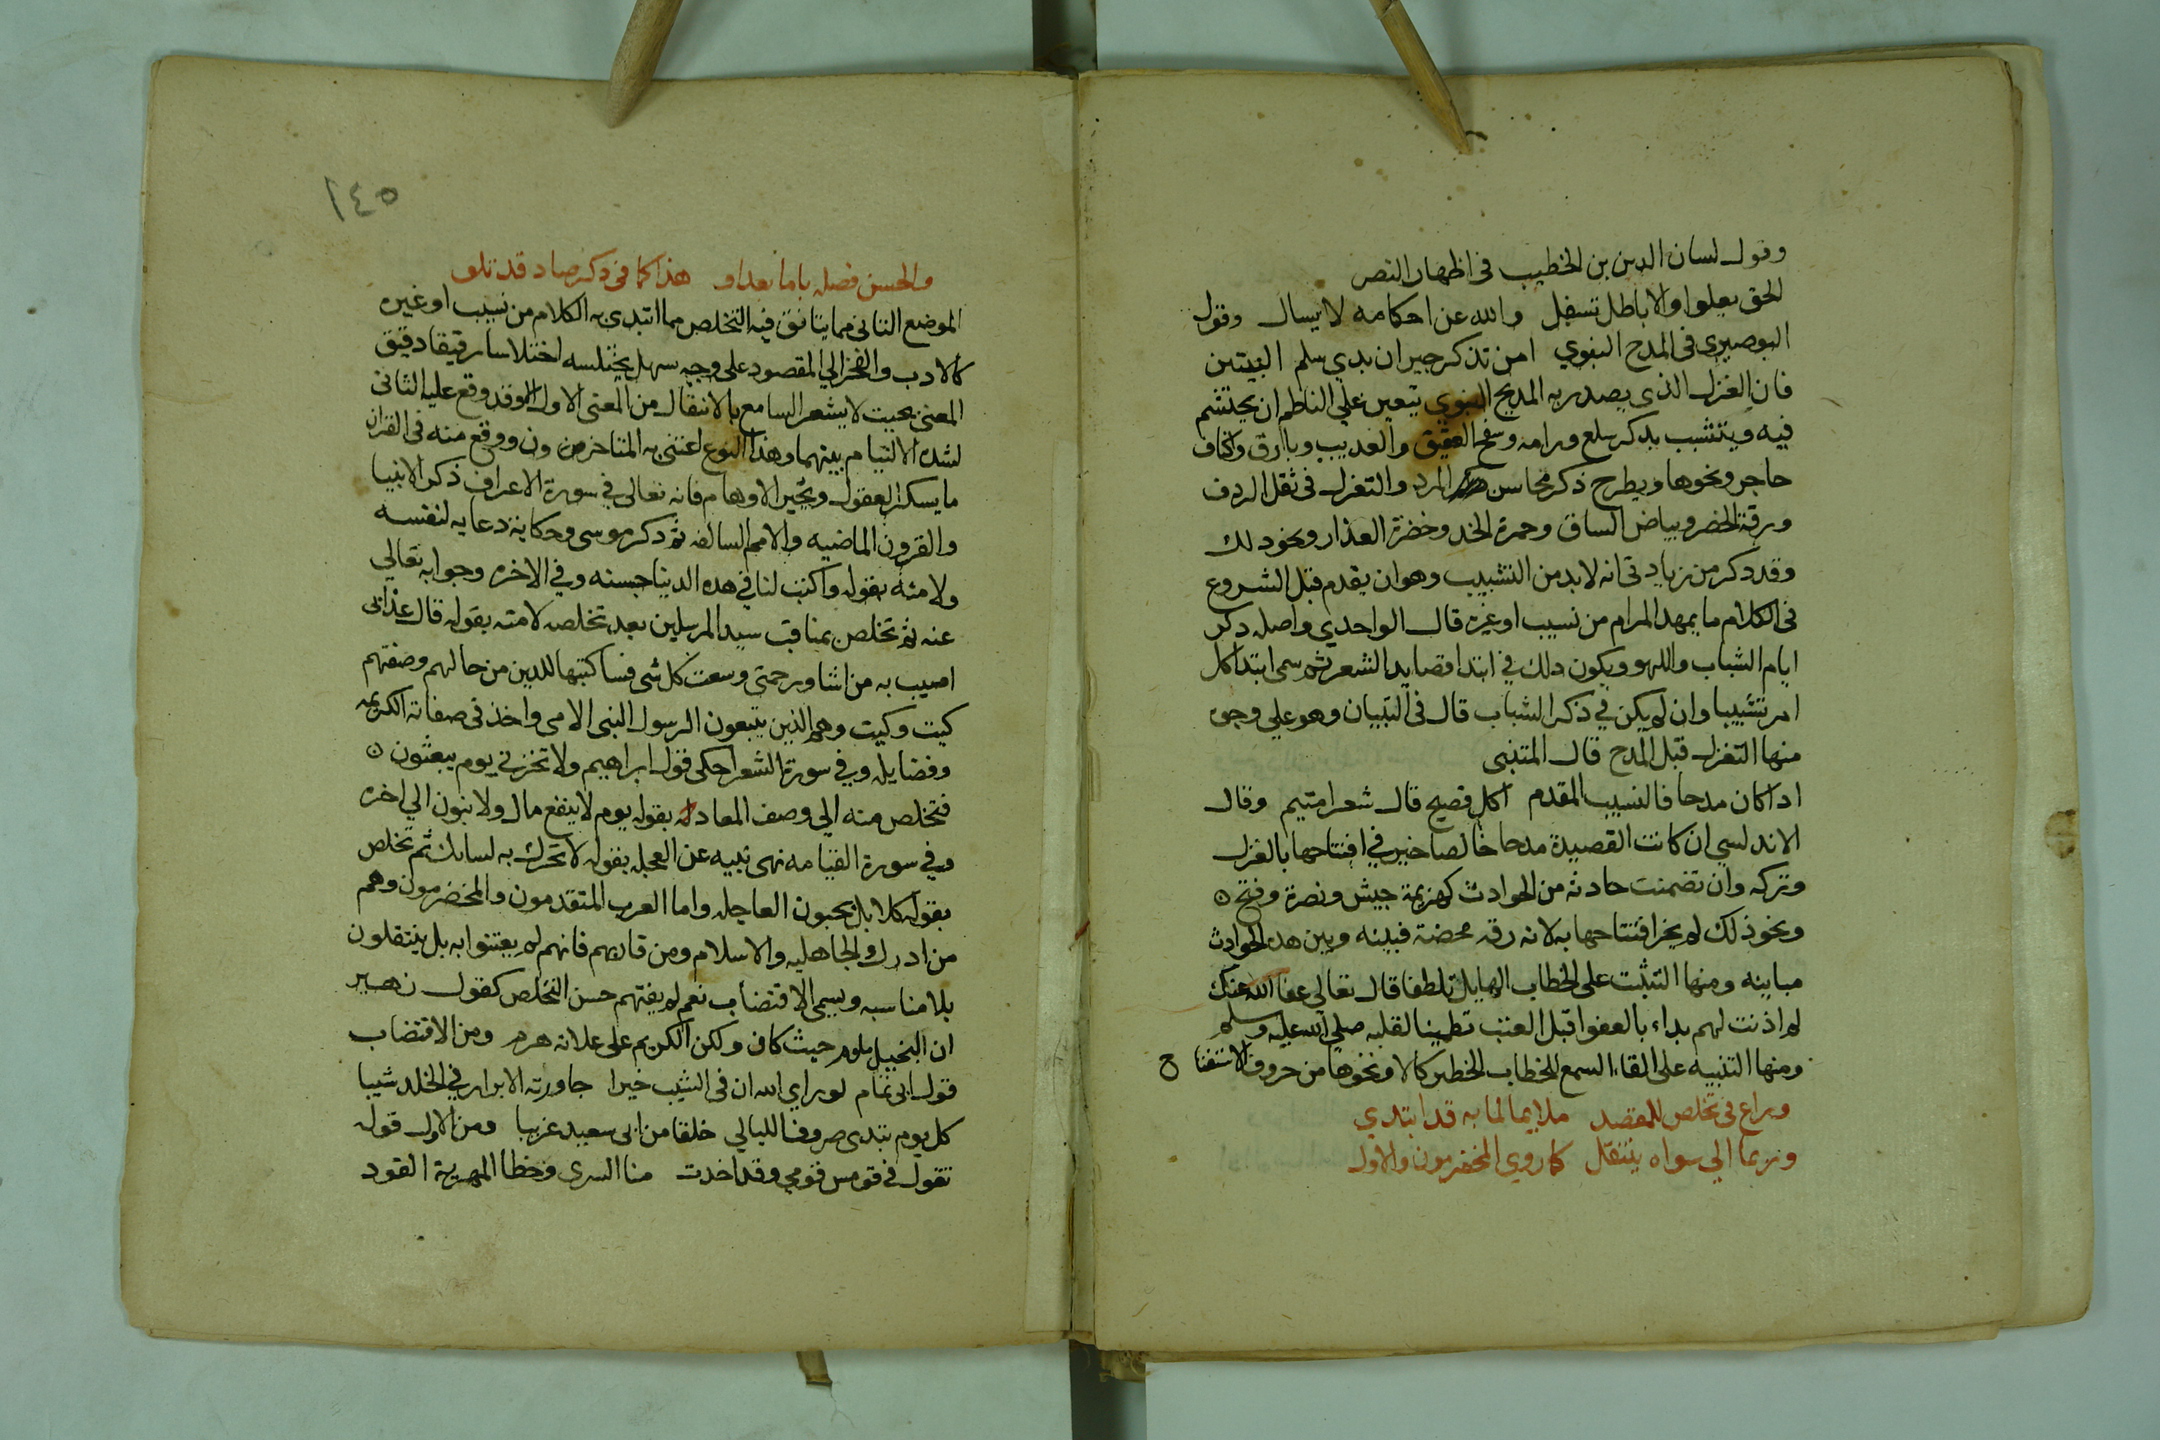 وقول لسان الدين بن الخطيب في اظهار النصر
الحق يعلوا والاباطل تسفل والله عن احكامه لا يسال وقول
البوصيري في المدح النبوي امن تذكر جيران بدي سلم البيتين
فان الغزل الذي يصدر به المديح النبوي يتعين علي الناظم ان يحتشم
فيه ويتشبب بذكر سلع ورامه وسفح العقيق والعديب وبارق واكناف
حاجر ونحوها ويطرح ذكر محاسن المرد والتغزل في ثقل الردف
ورقة الخصر وبياض الساق وحمرة الخد وخضرة العذار ونحو ذلك
وقد ذكر من زيادتي انه لابد من التشبيب وهو ان يقدم قبل الشروع
في الكلام ما يمهد المرام من نسيب او غيره قال الواحدي واصله ذكر
ايام الشباب واللهو ويكون ذلك في ابتدا قصايد الشعر ثم سمي ابتدا كل
امر تشبيبا وان لم يكن في ذكر الشباب قال في التبيان وهو علي وجوه
منها التغزل قبل المدح قال المتنبي
اذا كان مدحا فالنسيب المقدم اكل فصيح قال شعرا متيم وقال
الاندلسي ان كانت القصيدة مدحا خالصا خير في افتتاحها بالغزل
وتركه وان تضمنت حادثه من الحوادث كهزيمة جيش ونصرة وفتح ٥
ونحو ذلك لم يجز افتتاحها به لانه رقه محضة فبينه وبين هذه الحوادث
مباينه ومنها التثبت على الخطاب الهايل تلطفا قال تعالي عفا الله عنك
لم اذنت لهم بداء بالعفوا قبل العتب تطمينا لقلبه صلي الله عليه وسلم
ومنها التنبيه على القاء السمع للخطاب الخطير كالا ونحوها من حروف الاستفتاح
وراع في تخلص للمقصد ملايما لما به قد ابتدي
وربما الي سواه ينتقل كما روي المخضرمون والاول
١٤٥
والحسن فصله باما بعد او هذا كما في ذكر صاد قد تلو
الموضع الثاني مما يتانق فيه التخلص مما ابتدي به الكلام من نسيب او غيره
كالادب والفخر الي المقصود علي وجه سهل يختلسه اختلاسا رقيقا دقيق
المعني بحيت لا يشعر السامع بالانتقال من المعني الاول الا وقد وقع عليه الثاني
لشدة الالتيام بينهما وهذا النوع اعتني به المتاخرون ووقع منه في القران
ما يسكر العقول ويحير الاوهام فانه تعالي في سورة الاعراف ذكر الانبيا
والقرون الماضيه والامم السالفه ثم ذكر موسي وحكاية دعايه لنفسه
ولامته بقوله واكتب لنا في هذه الدنيا حسنه وفي الاخره وجوابه تعالي
عنه ثم تخلص بمناقب سيد المرسلين بعد تخلصه لامته بقوله قال عذابي
اصيب به من اشا ورحمتي وسعت كل شي فساكتبها للذين من حالهم وصفتهم
كيت وكيت وهم الذين يتبعون الرسول النبي الامي واخذ في صفاته الكريمه
وفضايله وفي سورة الشعرا حكي قول ابراهيم ولا تخزني يوم يبعثون ٥
فتخلص منه الي وصف المعاد بقوله يوم لا ينفع مال ولا بنون الي اخره
وفي سورة القيامه نهي نبيه عن العجله بقوله لا تحرك به لسانك ثم تخلص
بقوله كلا بل يحبون العاجله واما العرب المتقدمون والمخضرمون وهم
من ادرك الجاهليه والاسلام ومن قاربهم فانهم لم يعتنوا به بل ينتقلون
بلا مناسبه ويسمي الاقتضاب نعم لم يفتهم حسن التخلص كقول زهير
ان البخيل ملوم حيث كان ولكن الكريم على علاته هرم ومن الاقتضاب
قول ابي تمام لو راي الله ان في الشيب خيرا جاورته الابرار في الخلد شيبا
كل يوم تبدي صروف الليالي خلقا من ابي سعيد غريبا ومن الاول قوله
تقول في قومس قومي وقد اخدت منا السري وخطا المهرية القود